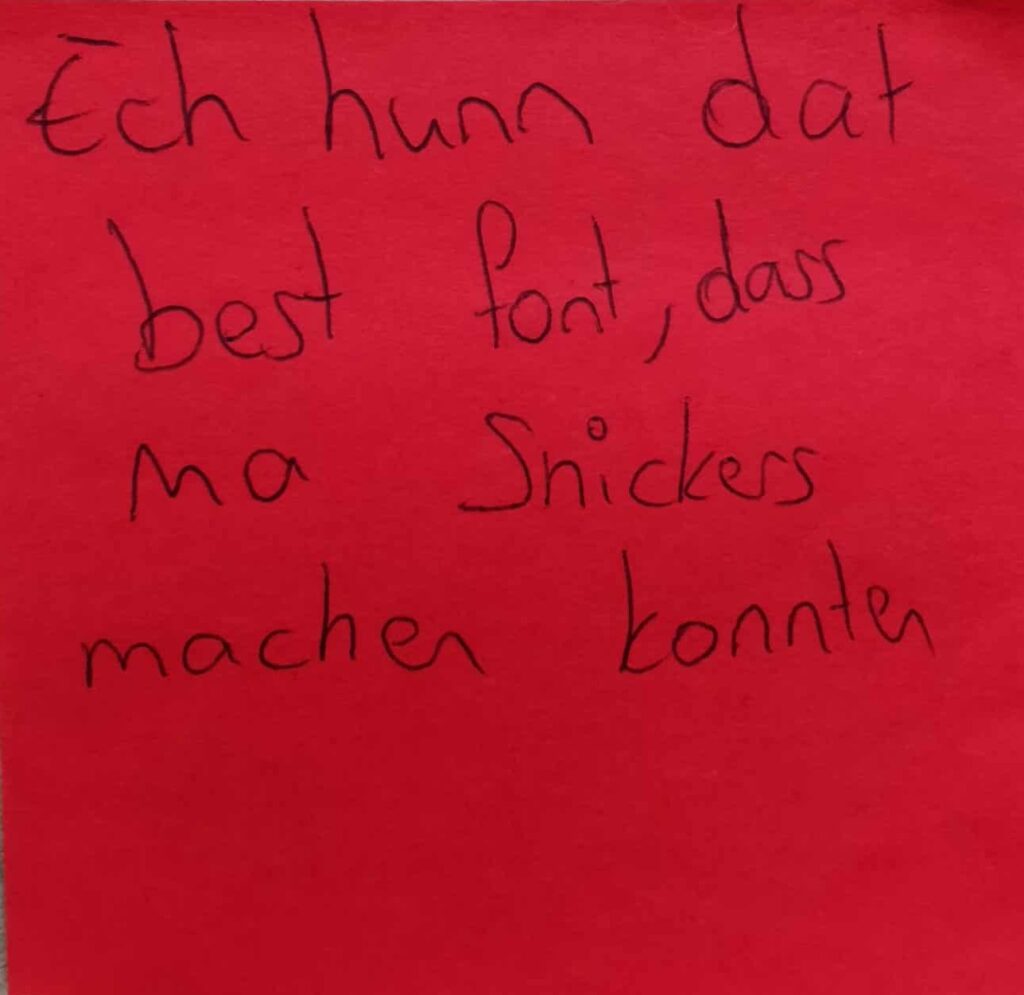 Ëch hunn dat
best font, dass
ma Snickers
machen konnten